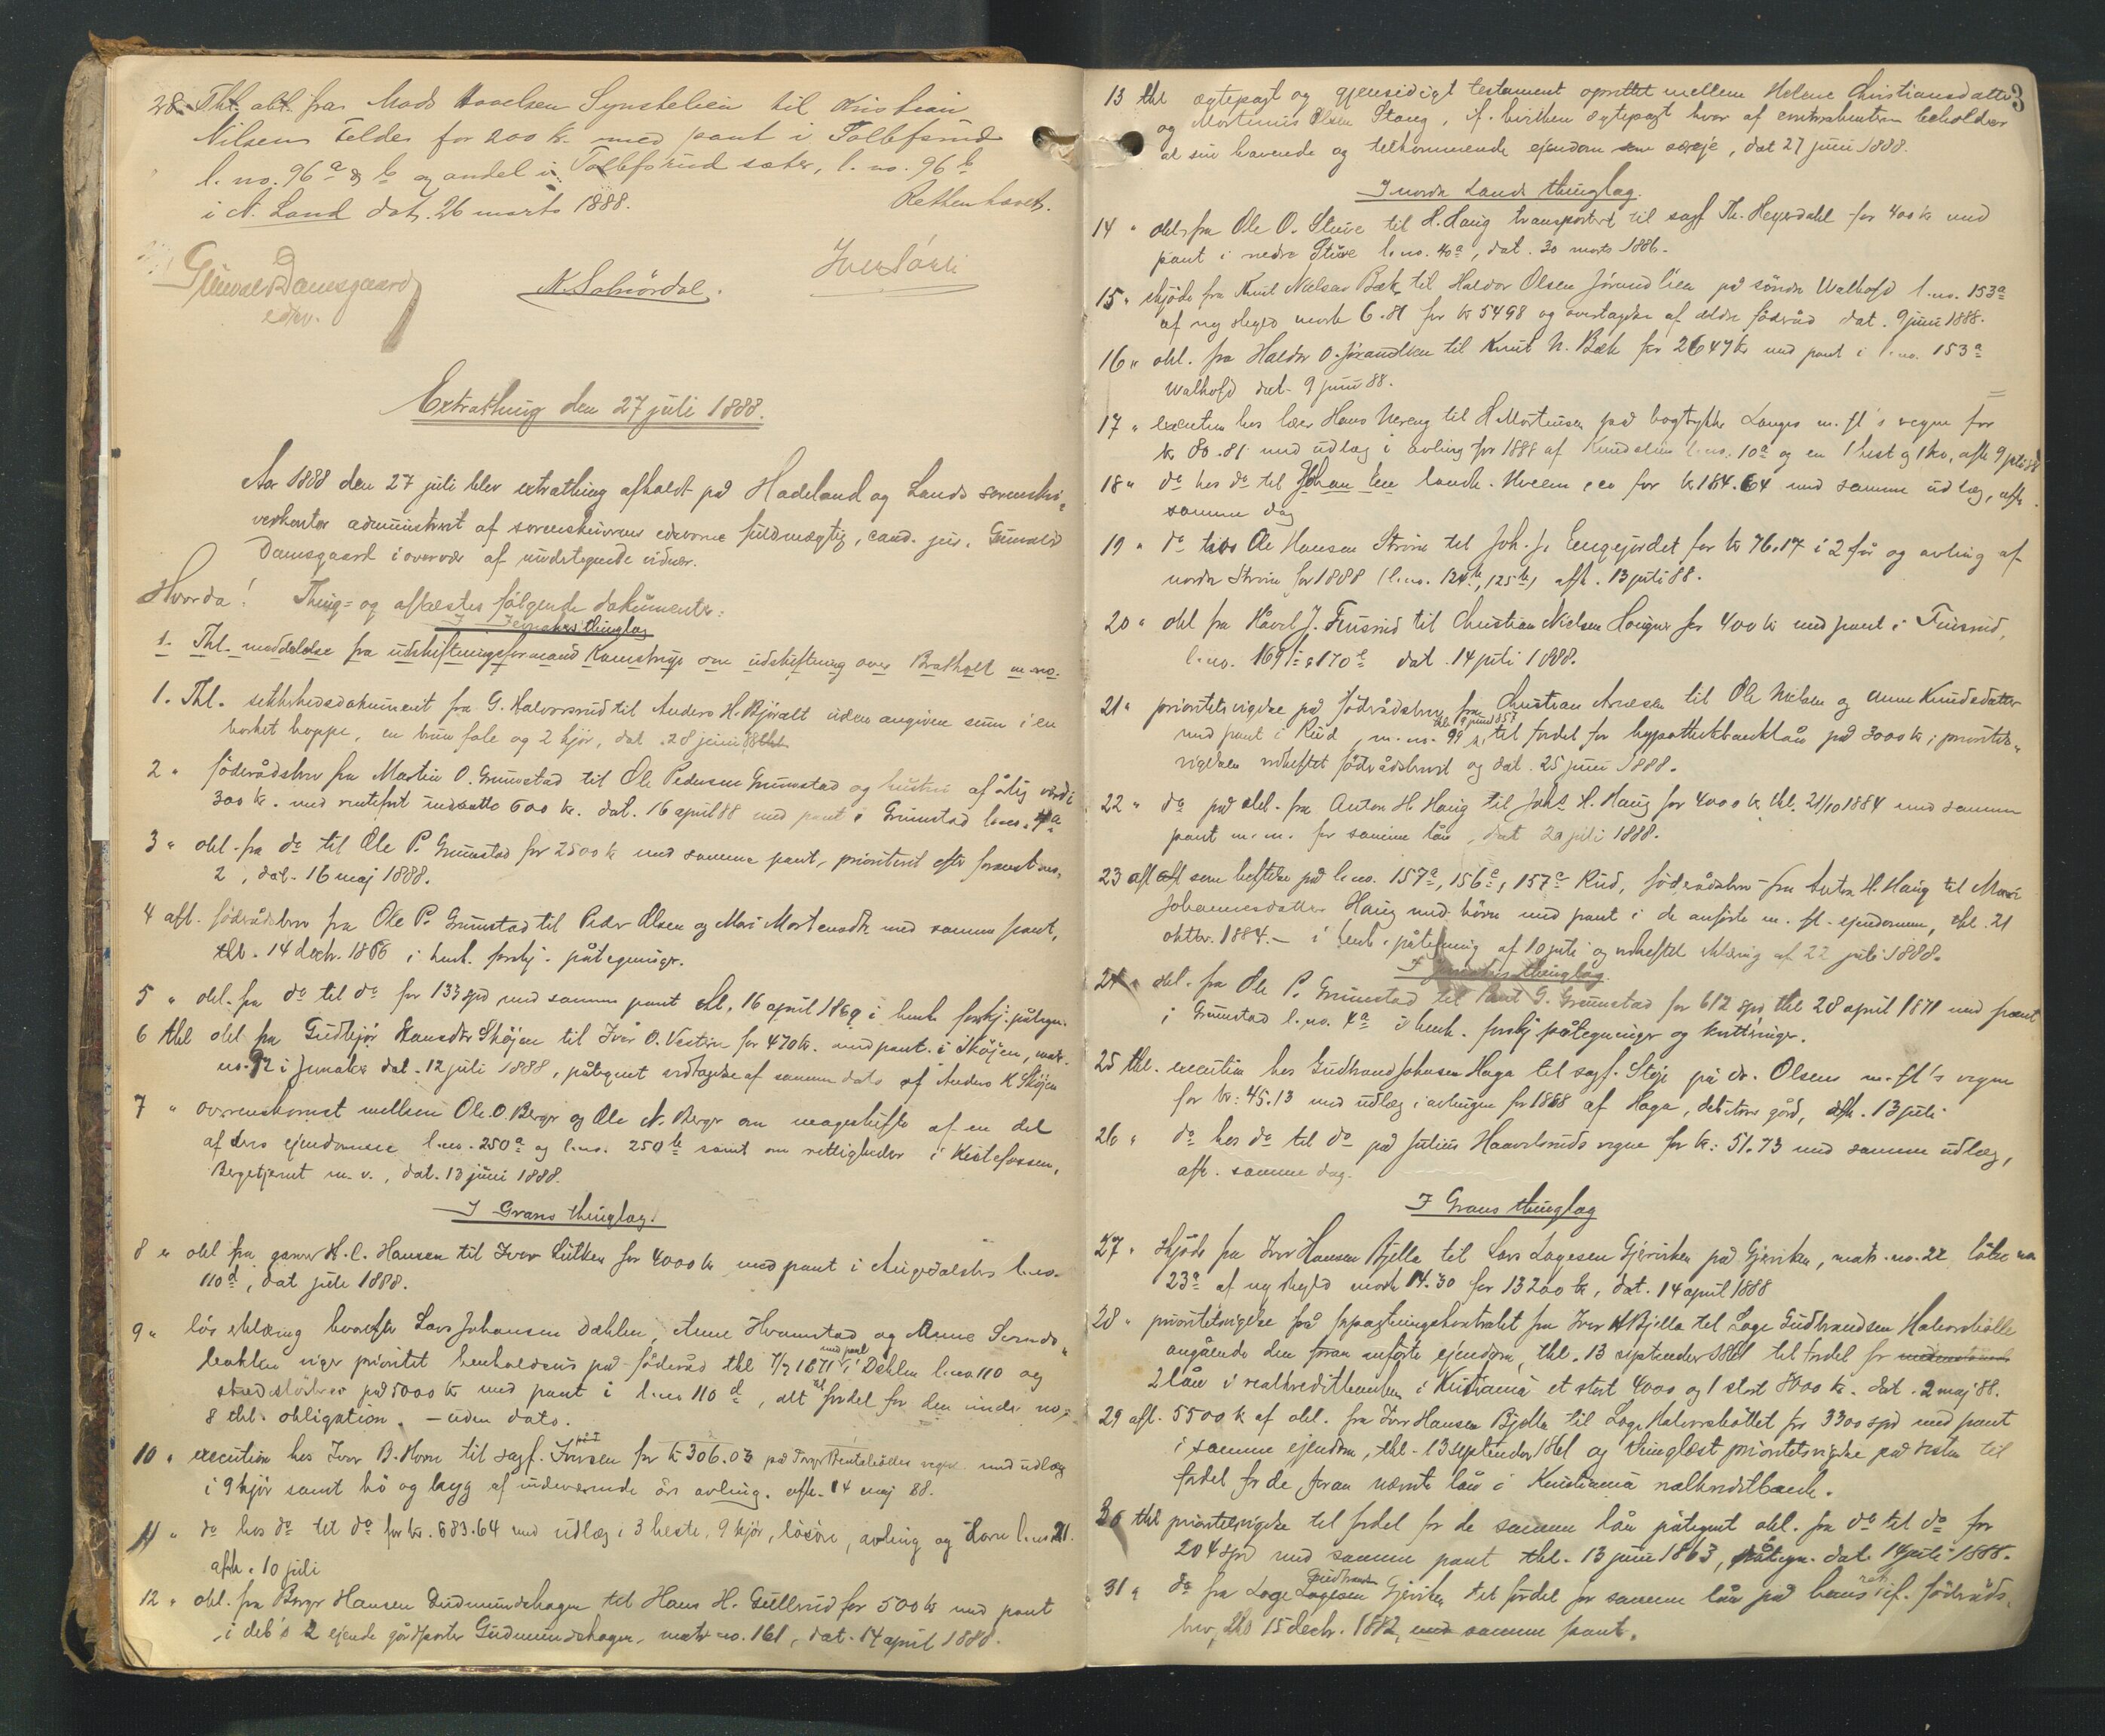 28. Thl. obl. fra Mads Haavelsen Synstelien til Kristian
Nilsen Felde for 200 kr. med pant i Tollefsrud
l. no. 96 a & b og andel i Tollefsrud sæter, l. no. 96 b
i N. Land dat. 26 marts 1888.
Retten hævet.
Gunvald Damsgaard
edsv.
Extrathing den 27 juli 1888.
Aar 1888 den 27 juli blev extrathing afholdt på Hadeland og Lands sorenskri-
verkontor administreret af sorenskriverens edsvorne fuldmægtig, cand. jur. Gunvald
Damsgaard i overvær af undertegnede vidner.
Hvorda! Thing- og aflæstes følgende dokumenter:
I Jevnakers thinglag
1. Thl. meddelelse fra udskiftningsformand Kamstrup om udskiftning over Bratholt m. no.
1. Thl. sikkerhedsdokument fra G. Halvorsrud til Anders H. Bjøralt uden angiven sum i en
borket hoppe, en brun fole og 2 kjør, dat. 28 juni 88
2 " föderådsbrev fra Martin O. Grimstad til Ole Pedersen Grimstad og hustru af årlig værdi
300 kr. med rentefrit indsatte 600 kr. dat. 16 april 88 med pant i Grimstad l. no. 4 a
3 " obl. fra do til Ole P. Grimstad for 2500 kr med samme pant, prioriteret efter foranst. no.
2, dat. 16 maj 1888.
4 afl. föderådsbrev fra Ole P. Grimstad til Peder Olsen og Mari Mortensdtr med samme pant,
thl. 14 decbr. 1866 i henh. forskj. påtegninger.
5 " obl. fra do til do for 133 spd med samme pant thl. 16 april 1869 i henh. forskj. påtegn.
6 thl obl fra Gudbjør Hansdtr Skøjen til Iver O. Vestrn for 470 kr. med pant i Skøjen, matr.
no. 92 i Jevnaker dat. 12 juli 1888, påtegnet vedtagelse af samme dato af Anders K. Skøjen
7 " overenskomst mellem Ole O. Berger og Ole N. Berger om mageskifte af en del
af deres ejendomme l. no. 250 a og l. no. 250 b samt om rettigheder i Kistefossen,
Bergetjernet m. v., dat. 13 juni 1888.
I Grans thinglag.
8 " obl fra garver H. C. Hansen til Iver Lutken for 4000 kr med pant i Augedalsbro l. no.
110 d, dat juli 1888.
9 " lös erklæring hvorefter Lars Johansen Dæhlen, Anne Hvamstad og Anne Svends-
bakken viger prioritet henholdsvis på föderåd thl 7/7 1871 med pant i Dæhlen l. no 110 og
skadeslösbrev på 5000 kr med pant i l. no 110 d, alt til fordel for den under no.
8 thl. obligation. – uden dato.
10 " execution hos Iver B. Horn til sagf. Iversen for kr 306.03 på vegne med udlæg
i 9 kjør samt hö og byg af indeværende års avling. afh. 14 maj 88.
11 " do hos do til do for kr. 683.64 med udlæg i 3 heste, 9 kjør, lösöre, avling og Horn l. no 21.
afh. 10 juli
12 " obl. fra Berger Hansen Gudmundshagen til Hans H. Gullerud for 500 kr med pant
i deb's 2 ejende gårdparter Gudmundshagen matr no. 161, dat. 14 april 1888.
3
13 thl ægtepagt og gjensidigt testament oprettet mellem Helene Christiansdatter
og Martinius Olsen Stang, if. hvilken ægtepagt hver af contrahenterne beholder
al sin havende og tilkommende ejendom som særeje, dat 27 juni 1888.
I nordre Lands thinglag.
14 " obl. fra Ole O. Stuve til H. Haug transporteret til sagf Th. Heyerdahl for 400 kr med
pant i nedre Stuve l. no. 40 a, dat. 30 marts 1886.
15 " skjöde fra Knut Nielsen Bæk til Haldor Olsen Jörandlien på söndre Walhofd l. no. 153 a
af ny skyld mark 6.81 for kr 5498 og overtagelse af ældre föderåd dat. 9 juni 1888.
16 " obl. fra Haldor O. Jörandlien til Knut N. Bæk for 2649 kr med pant i l. no. 153 a
Walhofd dat. 9 juni 88.
17 " execution hos læer Hans Nereng til H Mortensen på bogtrykker Langes m. fl's vegne for
kr 80.81 med udlæg i avling for 1888 af l. no. 10 a og en 1 hest og 1 ko, afh 9 juli 88
18 " do hos do til Johan Lie landh. for kr 184.64 med samme udlæg, afh.
samme dag
19 " do hos Ole Hansen Strøm til Joh. J. Engejordet for kr 76.17 i 2 får og avling af
nordre Strøm for 1888 (l. no. 124 b, 125 b), afh. 13 juli 88.
20 " obl fra Håvel J. Fuusrud til Christian Nielsen Hougner for 400 kr med pant i Fuusrud,
l. no. 169 & 170 dat. 14 juli 1888.
21 " prioritetsvigelse på föderådsbrev fra Christian Arnesen til Ole Nielsen og Anne Knudsdatter
med pant i Rud, m. no. 99 til fordel for hypothekbanklån på 3000 kr, prioritets-
vigelsen vedheftet föderådsbrevet og dat. 25 juni 1888.
22 " do på obl. fra Anton H. Haug til Johs H. Haug for 4000 kr thl. 21/10 1884 med samme
pant m. m. for samme lån, dat 20 juli 1888.
23 afl som heftelse på l. no. 157 a, 156 a, 157 c Rud, föderådsbrev fra Anton H. Haug til Mari
Johannesdatter Haug med börn med pant i de anførte m. fl. ejendomme, thl. 21
oktbr. 1884. – i henh. påtegning af 10 juli og vedheftet erklæring af 22 juli 1888.
I Jevnakers thinglag.
24 " obl. fra Ole P. Grimstad til Paul G. Grimstad for 612 spd, thl 28 april 1871 med pant
i Grimstad l. no. 4 a i henh. forskj påtegninger og kvitteringer.
25 thl. execution hos Gudbrand Johnsen Haga til sagf. Stöje på dr. Olsens m. fl's vegne
for kr: 45.13 med udlæg i avlingen for 1888 af Haga, debitors gård, afh. 13 juli
26 " do hos do til do på Julius Haavelsruds vegne for kr: 51.73 med samme udlæg,
afh. samme dag.
I Grans thinglag
27 " skjöde fra Iver Hansen Bjella til Lars Lagesen Gjerviken på Gjerviken, matr. no. 22 löbe no
23 a af ny skyld mark 14.30 for 13200 kr, dat. 14 april 1888
28 " prioritetsvigelse på forpagtningskontrakt fra Iver H Bjella til Lage Gudbrandsen Halvorsbölle
angående den foran anførte ejendom, thl. 13 september 1861 til fordel for
2 lån i realkreditbanken i Kristiania et stort 4000 og 1 stort 8000 kr. dat. 2 maj 88.
29 afl. 5500 k af obl. fra Iver Hansen Bjella til Lage Halvorsböttet for 3300 spd med pant
i samme ejendom, thl. 13 september 1861 og thinglæst prioritetsvigelse på resten til
fordel for de foran nævnte lån i Kristiania realkreditbank.
30 thl prioritetsvigelse til fordel for de samme lån påtegnet obl. fra do til do for
204 spd med samme pant thl. 13 juni 1863, påtegn. dat. 14 juli 1888.
31 " do fra Lage Gudbrandsen Gjerviken til fordel for samme lån på hans ret if. föderåds-
brev, thl 15 decbr. 1882, med samme pant.